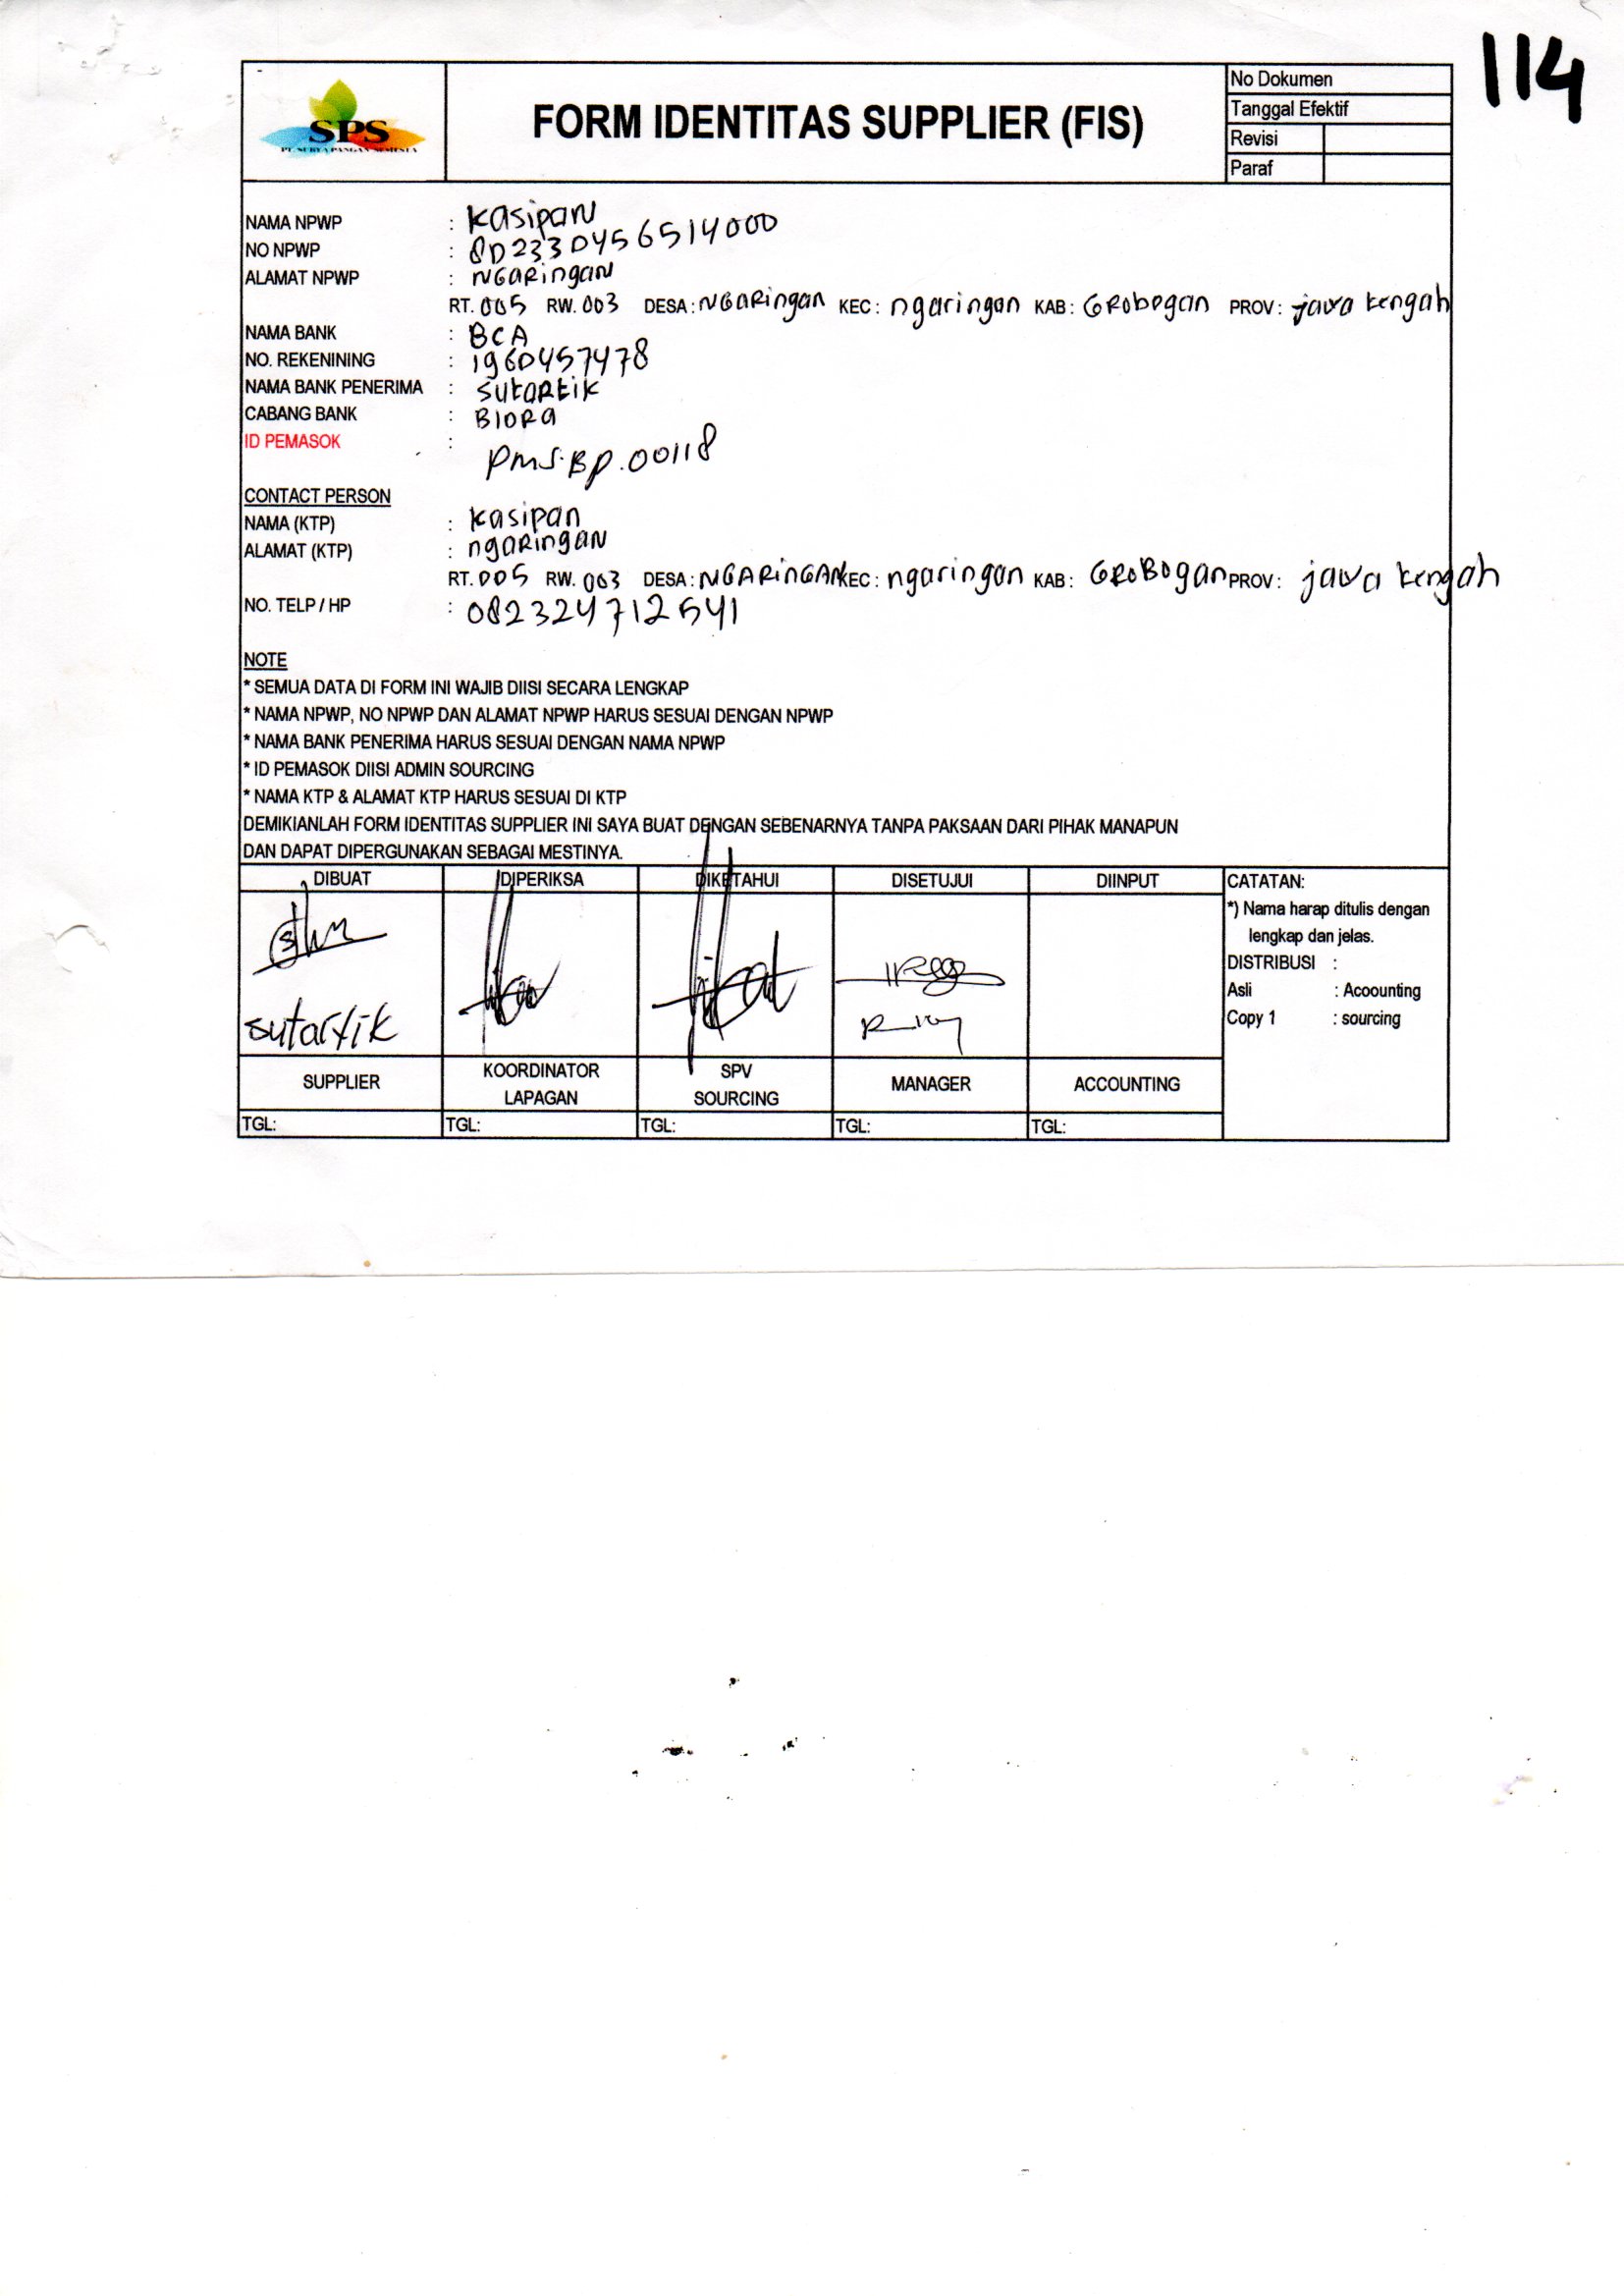 114
SPS
PT. SURYA PANGAN SEMESTA
FORM IDENTITAS SUPPLIER (FIS)
No Dokumen
Tanggal Efektif
Revisi
Paraf
NAMA NPWP : Kasipan
NO NPWP : 802330456514000
ALAMAT NPWP : NGARingan
RT. 005 RW. 003 DESA : NGARingan KEC : ngaringan KAB : GRobogan PROV : jawa tengah
NAMA BANK : BCA
NO. REKENINING : 1960457478
NAMA BANK PENERIMA : SutaRtik
CABANG BANK : BloRa
ID PEMASOK : PMS.BP.00118
CONTACT PERSON
NAMA (KTP) : Kasipan
ALAMAT (KTP) : ngaRingan
RT. 005 RW. 003 DESA : NGARINGAN KEC : ngaringan KAB : GRoBogan PROV : jawa tengah
NO. TELP / HP : 082324712541
NOTE
* SEMUA DATA DI FORM INI WAJIB DIISI SECARA LENGKAP
* NAMA NPWP, NO NPWP DAN ALAMAT NPWP HARUS SESUAI DENGAN NPWP
* NAMA BANK PENERIMA HARUS SESUAI DENGAN NAMA NPWP
* ID PEMASOK DIISI ADMIN SOURCING
* NAMA KTP & ALAMAT KTP HARUS SESUAI DI KTP
DEMIKIANLAH FORM IDENTITAS SUPPLIER INI SAYA BUAT DENGAN SEBENARNYA TANPA PAKSAAN DARI PIHAK MANAPUN
DAN DAPAT DIPERGUNAKAN SEBAGAI MESTINYA.
DIBUAT DIPERIKSA DIKETAHUI DISETUJUI DIINPUT
sutartik
SUPPLIER KOORDINATOR LAPAGAN SPV SOURCING MANAGER ACCOUNTING
TGL: TGL: TGL: TGL: TGL:
CATATAN:
*) Nama harap ditulis dengan
lengkap dan jelas.
DISTRIBUSI :
Asli : Acoounting
Copy 1 : sourcing